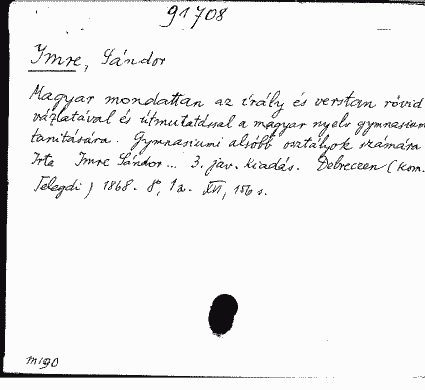 91708
Imre, Sándor
Magyar mondattan az irály és verstan rövid
vázlatával és útmutatással a magyar nyelv gymnasium
tanitására. Gymnasiumi alsóbb osztályok számára
Irta Imre Sándor... 3. jav. kiadás. Debreczen (Kom.
Telegdi) 1868. 8°, 1 a. XVI, 156 s.